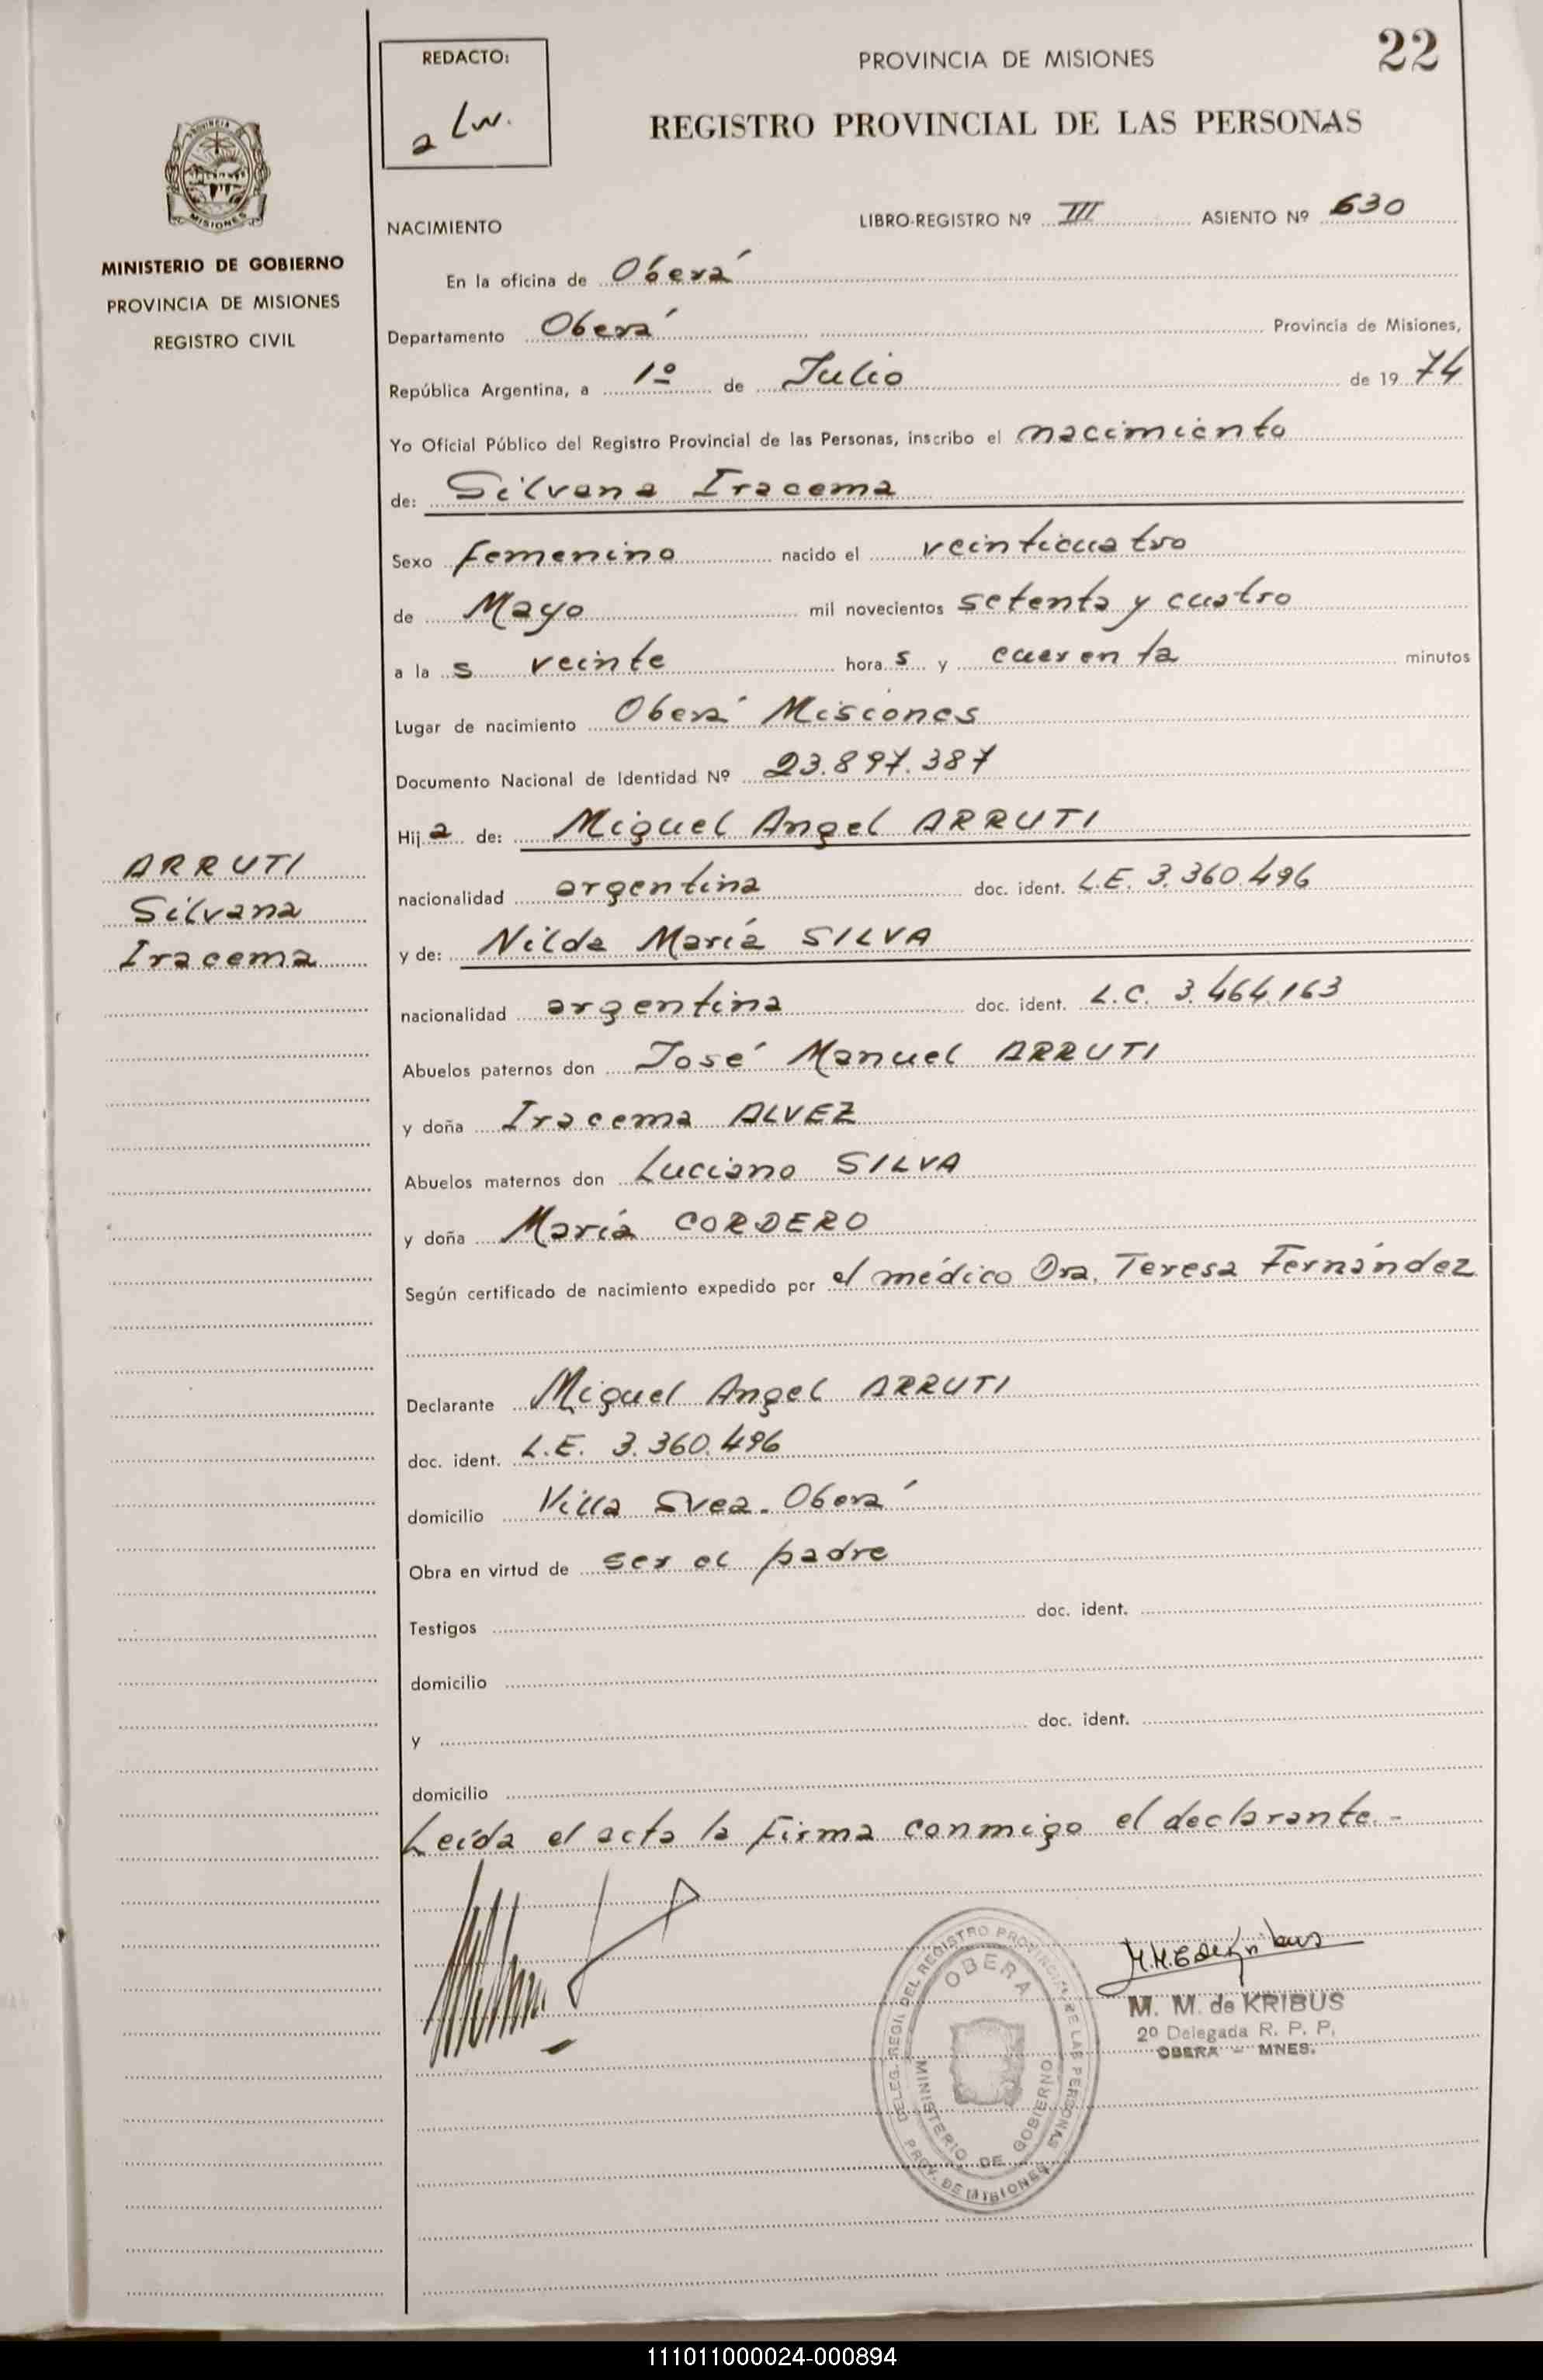 REDACTO:
a Lw.
PROVINCIA DE MISIONES
22
REGISTRO PROVINCIAL DE LAS PERSONAS
PROVINCIA DE
MISIONES
MINISTERIO DE GOBIERNO
PROVINCIA DE MISIONES
REGISTRO CIVIL
NACIMIENTO LIBRO-REGISTRO Nº III ASIENTO Nº 630
En la oficina de Oberá
Departamento Oberá Provincia de Misiones,
República Argentina, a 1º de Julio de 1974
Yo Oficial Público del Registro Provincial de las Personas, inscribo el nacimiento
de: Silvana Iracema
Sexo femenino nacido el veinticuatro
de Mayo mil novecientos setenta y cuatro
a la s veinte hora s y cuarenta minutos
Lugar de nacimiento Oberá Misiones
Documento Nacional de Identidad Nº 23.897.387
Hij a de: Miguel Angel ARRUTI
nacionalidad argentina doc. ident. L.E. 3.360.496
y de: Nilda María SILVA
nacionalidad argentina doc. ident. L.C. 3.464.163
Abuelos paternos don José Manuel ARRUTI
y doña Iracema ALVEZ
Abuelos maternos don Luciano SILVA
y doña María CORDERO
Según certificado de nacimiento expedido por el médico Dra. Teresa Fernández
Declarante Miguel Angel ARRUTI
doc. ident. L.E. 3.360.496
domicilio Villa Svea. Oberá
Obra en virtud de ser el padre
Testigos doc. ident.
domicilio
y doc. ident.
domicilio
Leída el acta la firma conmigo el declarante.-
ARRUTI
Silvana
Iracema
DELEG. REGI. DEL REGISTRO PROVINCIAL DE LAS PERSONAS
OBERA
MINISTERIO DE GOBIERNO
PROV. DE MISIONES
M. M. de KRIBUS
2º Delegada R. P. P.
OBERA - MNES.
111011000024-000894